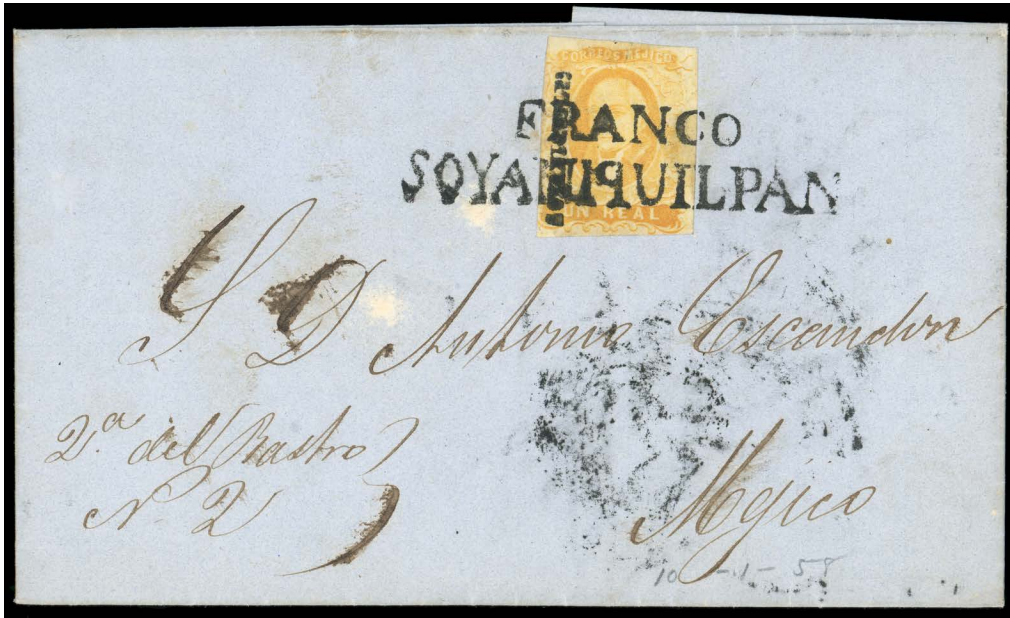 CORREOS MEJICO
FRANCO
SOYANIQUILPAN
UN REAL
S D Antonio Escandon
2ª del Rastro
N 2
Mejico
10 -1- 58